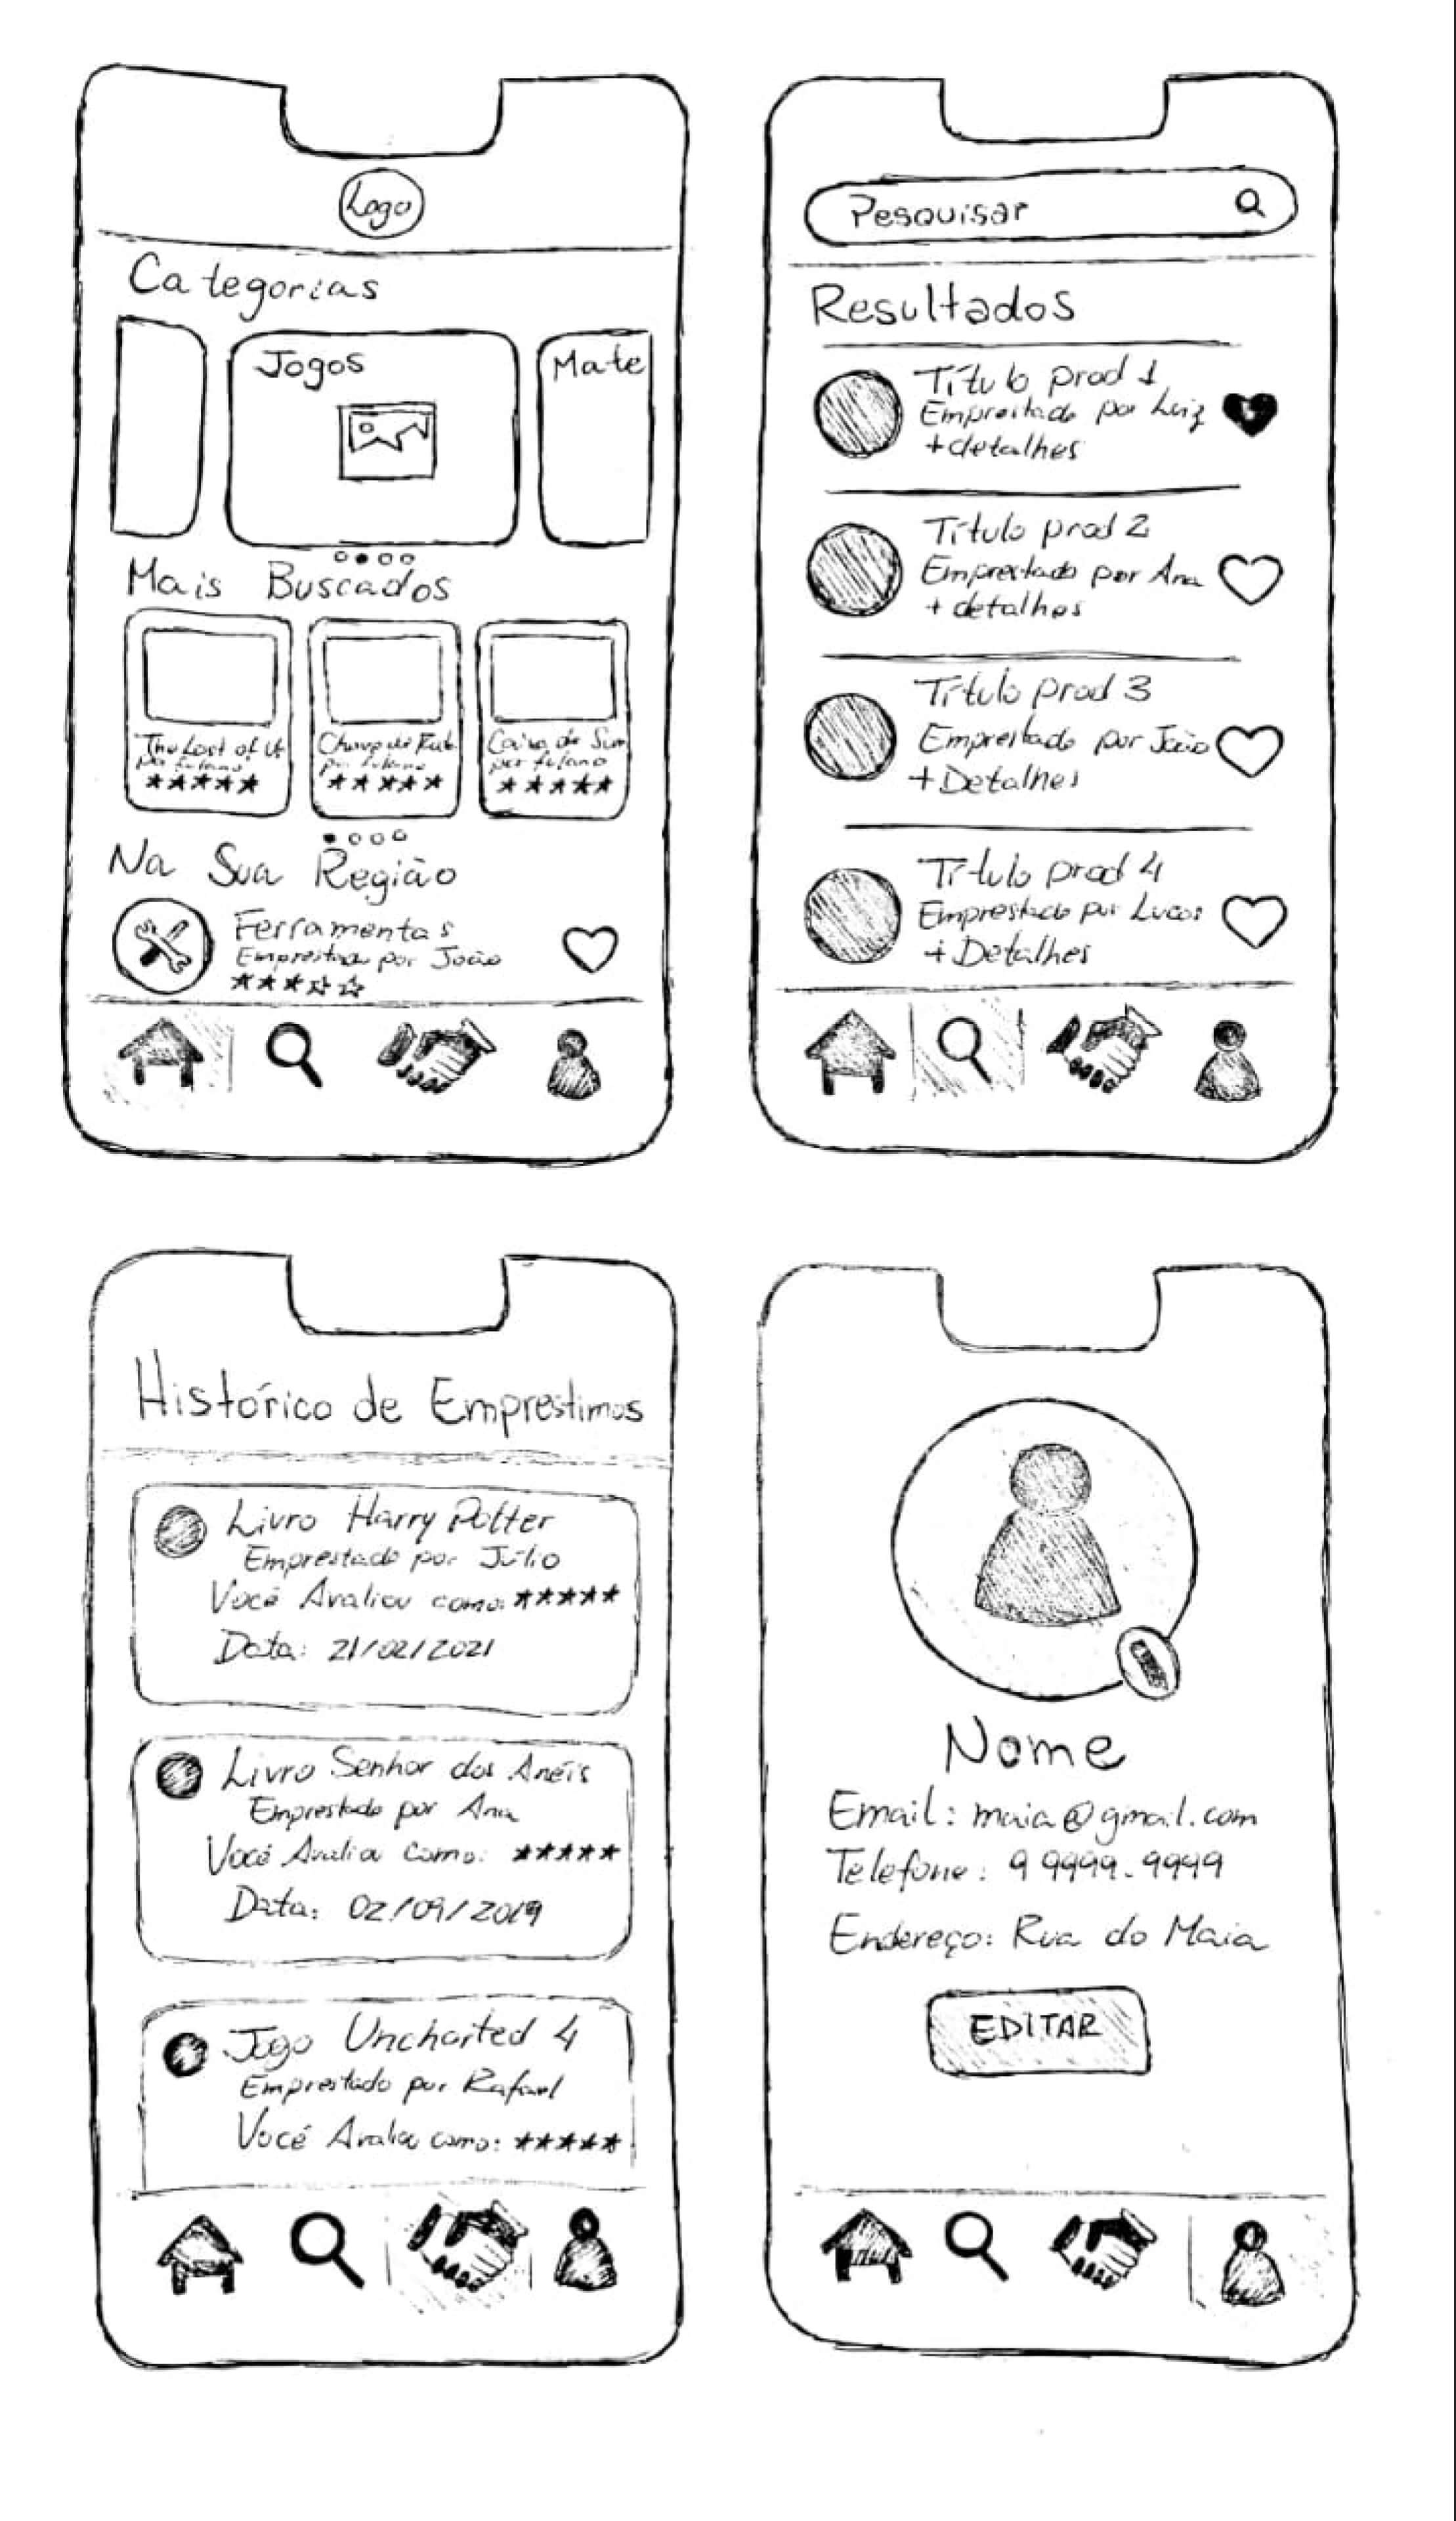 Logo
Categorias
Jogos
Mate
Mais Buscados
The Last of Us
por fulano
★★★★★
Chave de
por fulano
★★★★★
Caixa de Som
por fulano
★★★★★
Na Sua Região
Ferramentas
Emprestado por João
★★★☆☆
Pesquisar
Resultados
Título prod 1
Emprestado por Luiz
+detalhes
Título prod 2
Emprestado por Ana
+ detalhes
Título prod 3
Emprestado por João
+Detalhes
Título prod 4
Emprestado por Lucas
+ Detalhes
Histórico de Empréstimos
Livro Harry Potter
Emprestado por Júlio
Você Avaliou como: ★★★★★
Data: 21/02/2021
Livro Senhor dos Anéis
Emprestado por Ana
Você Avaliou Como: ★★★★★
Data: 02/09/2019
Jogo Uncharted 4
Emprestado por Rafael
Você Avaliou como: ★★★★★
Nome
Email: maia@gmail.com
Telefone: 9 9999-9999
Endereço: Rua do Maia
EDITAR